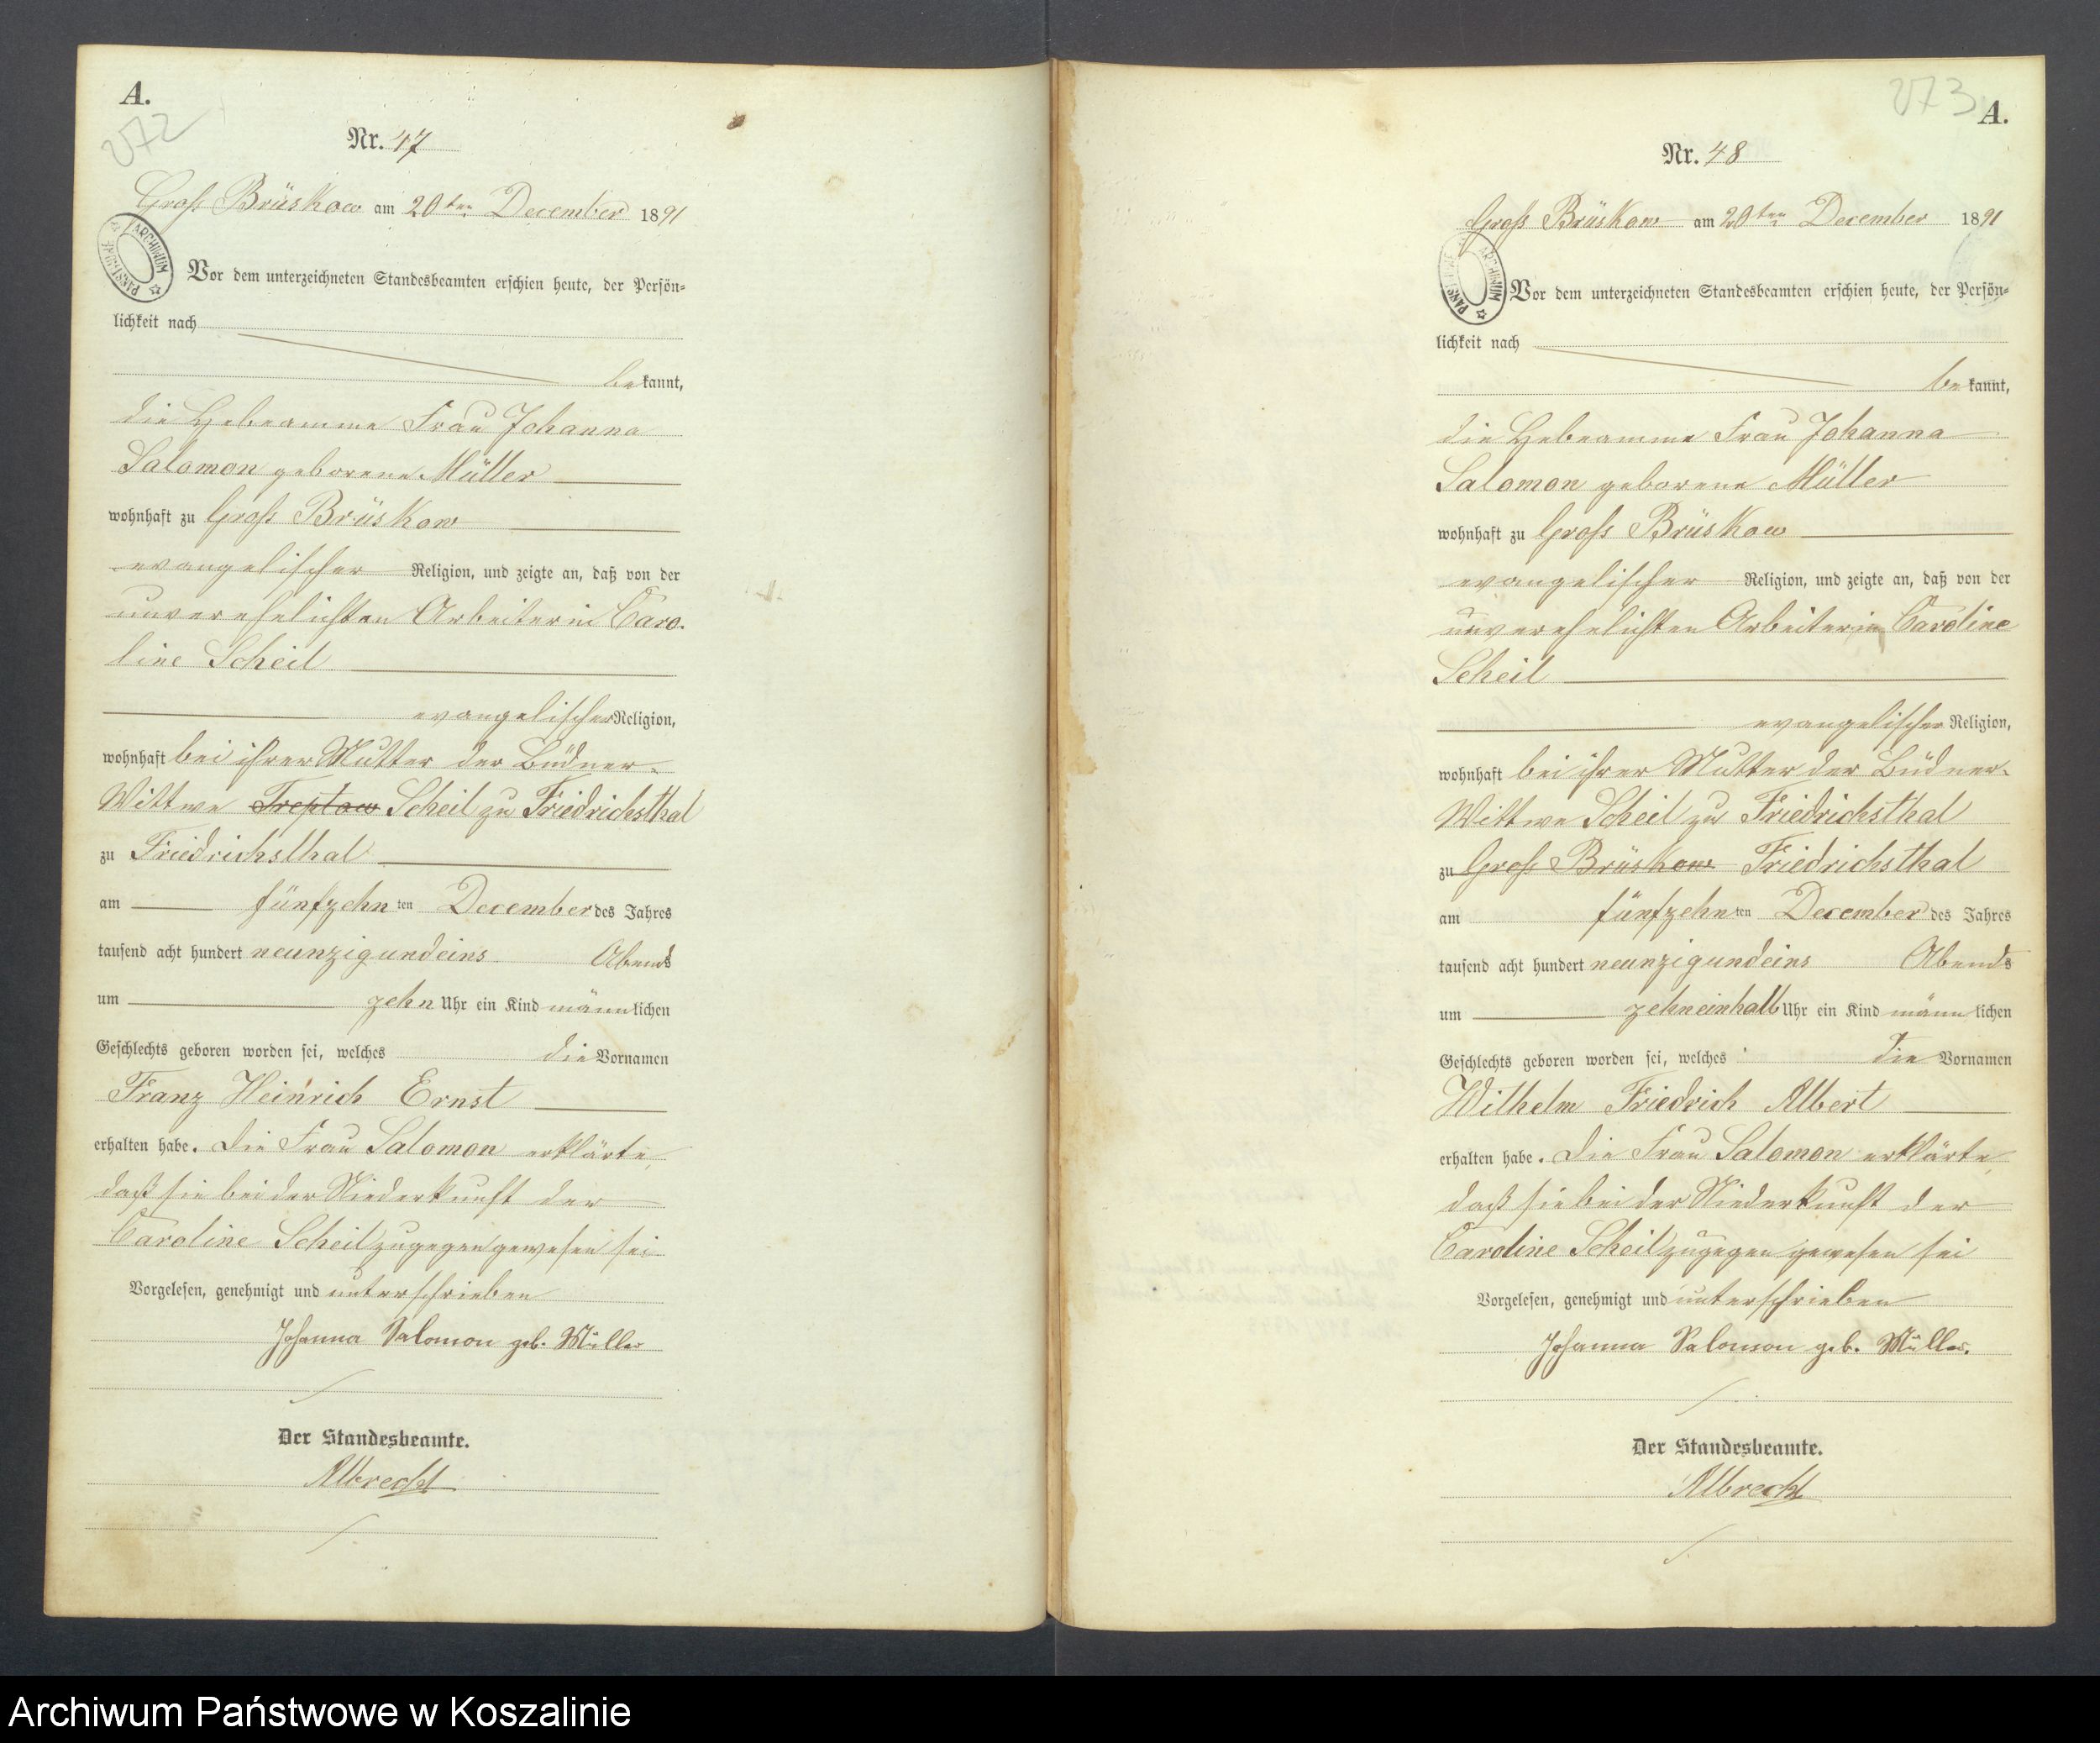 A.
272
Nr. 47
Groß Brüskow am 20ten December 1891
ARCHIWUM PAŃSTWOWE
Vor dem unterzeichneten Standesbeamten erschien heute, der Persön-
lichkeit nach
bekannt,
die Hebeamme Frau Johanna
Salomon geborene Müller
wohnhaft zu Groß Brüskow
evangelischer Religion, und zeigte an, daß von der
unverehelichten Arbeiterin Caro-
line Scheil
evangelischer Religion,
wohnhaft bei ihrer Mutter der Büdner-
Wittwe Treptow Scheil zu Friedrichsthal
zu Friedrichsthal
am fünfzehnten December des Jahres
tausend acht hundert neunzigundeins Abends
um zehn Uhr ein Kind männlichen
Geschlechts geboren worden sei, welches die Vornamen
Franz Heinrich Ernst
erhalten habe. Die Frau Salomon erklärte,
daß sie bei der Niederkunft der
Caroline Scheil zugegen gewesen sei
Vorgelesen, genehmigt und unterschrieben
Johanna Salomon geb. Müller
Der Standesbeamte.
Albrecht
273
A.
Nr. 48
Groß Brüskow am 20ten December 1891
ARCHIWUM PAŃSTWOWE
Vor dem unterzeichneten Standesbeamten erschien heute, der Persön-
lichkeit nach
bekannt,
die Hebeamme Frau Johanna
Salomon geborene Müller
wohnhaft zu Groß Brüskow
evangelischer Religion, und zeigte an, daß von der
unverehelichten Arbeiterin Caroline
Scheil
evangelischer Religion,
wohnhaft bei ihrer Mutter der Büdner-
Wittwe Scheil zu Friedrichsthal
zu Groß Brüskow Friedrichsthal
am fünfzehnten December des Jahres
tausend acht hundert neunzigundeins Abends
um zehneinhalb Uhr ein Kind männlichen
Geschlechts geboren worden sei, welches die Vornamen
Wilhelm Friedrich Albert
erhalten habe. Die Frau Salomon erklärte,
daß sie bei der Niederkunft der
Caroline Scheil zugegen gewesen sei
Vorgelesen, genehmigt und unterschrieben
Johanna Salomon geb. Müller.
Der Standesbeamte.
Albrecht
Archiwum Państwowe w Koszalinie